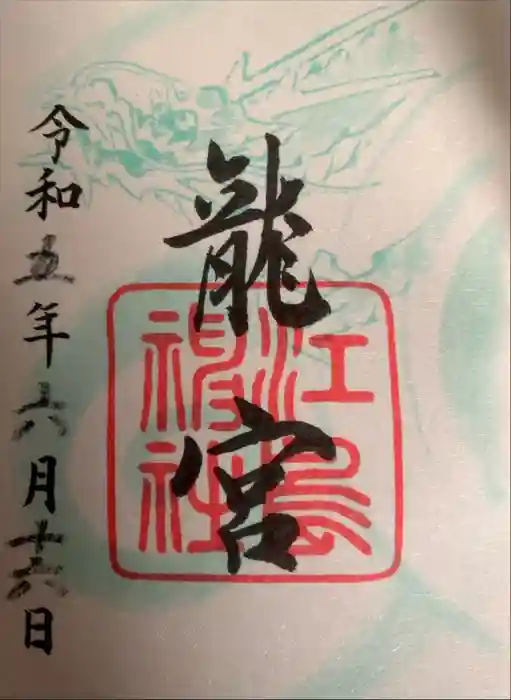 龍宮
江島神社
令和五年六月十六日